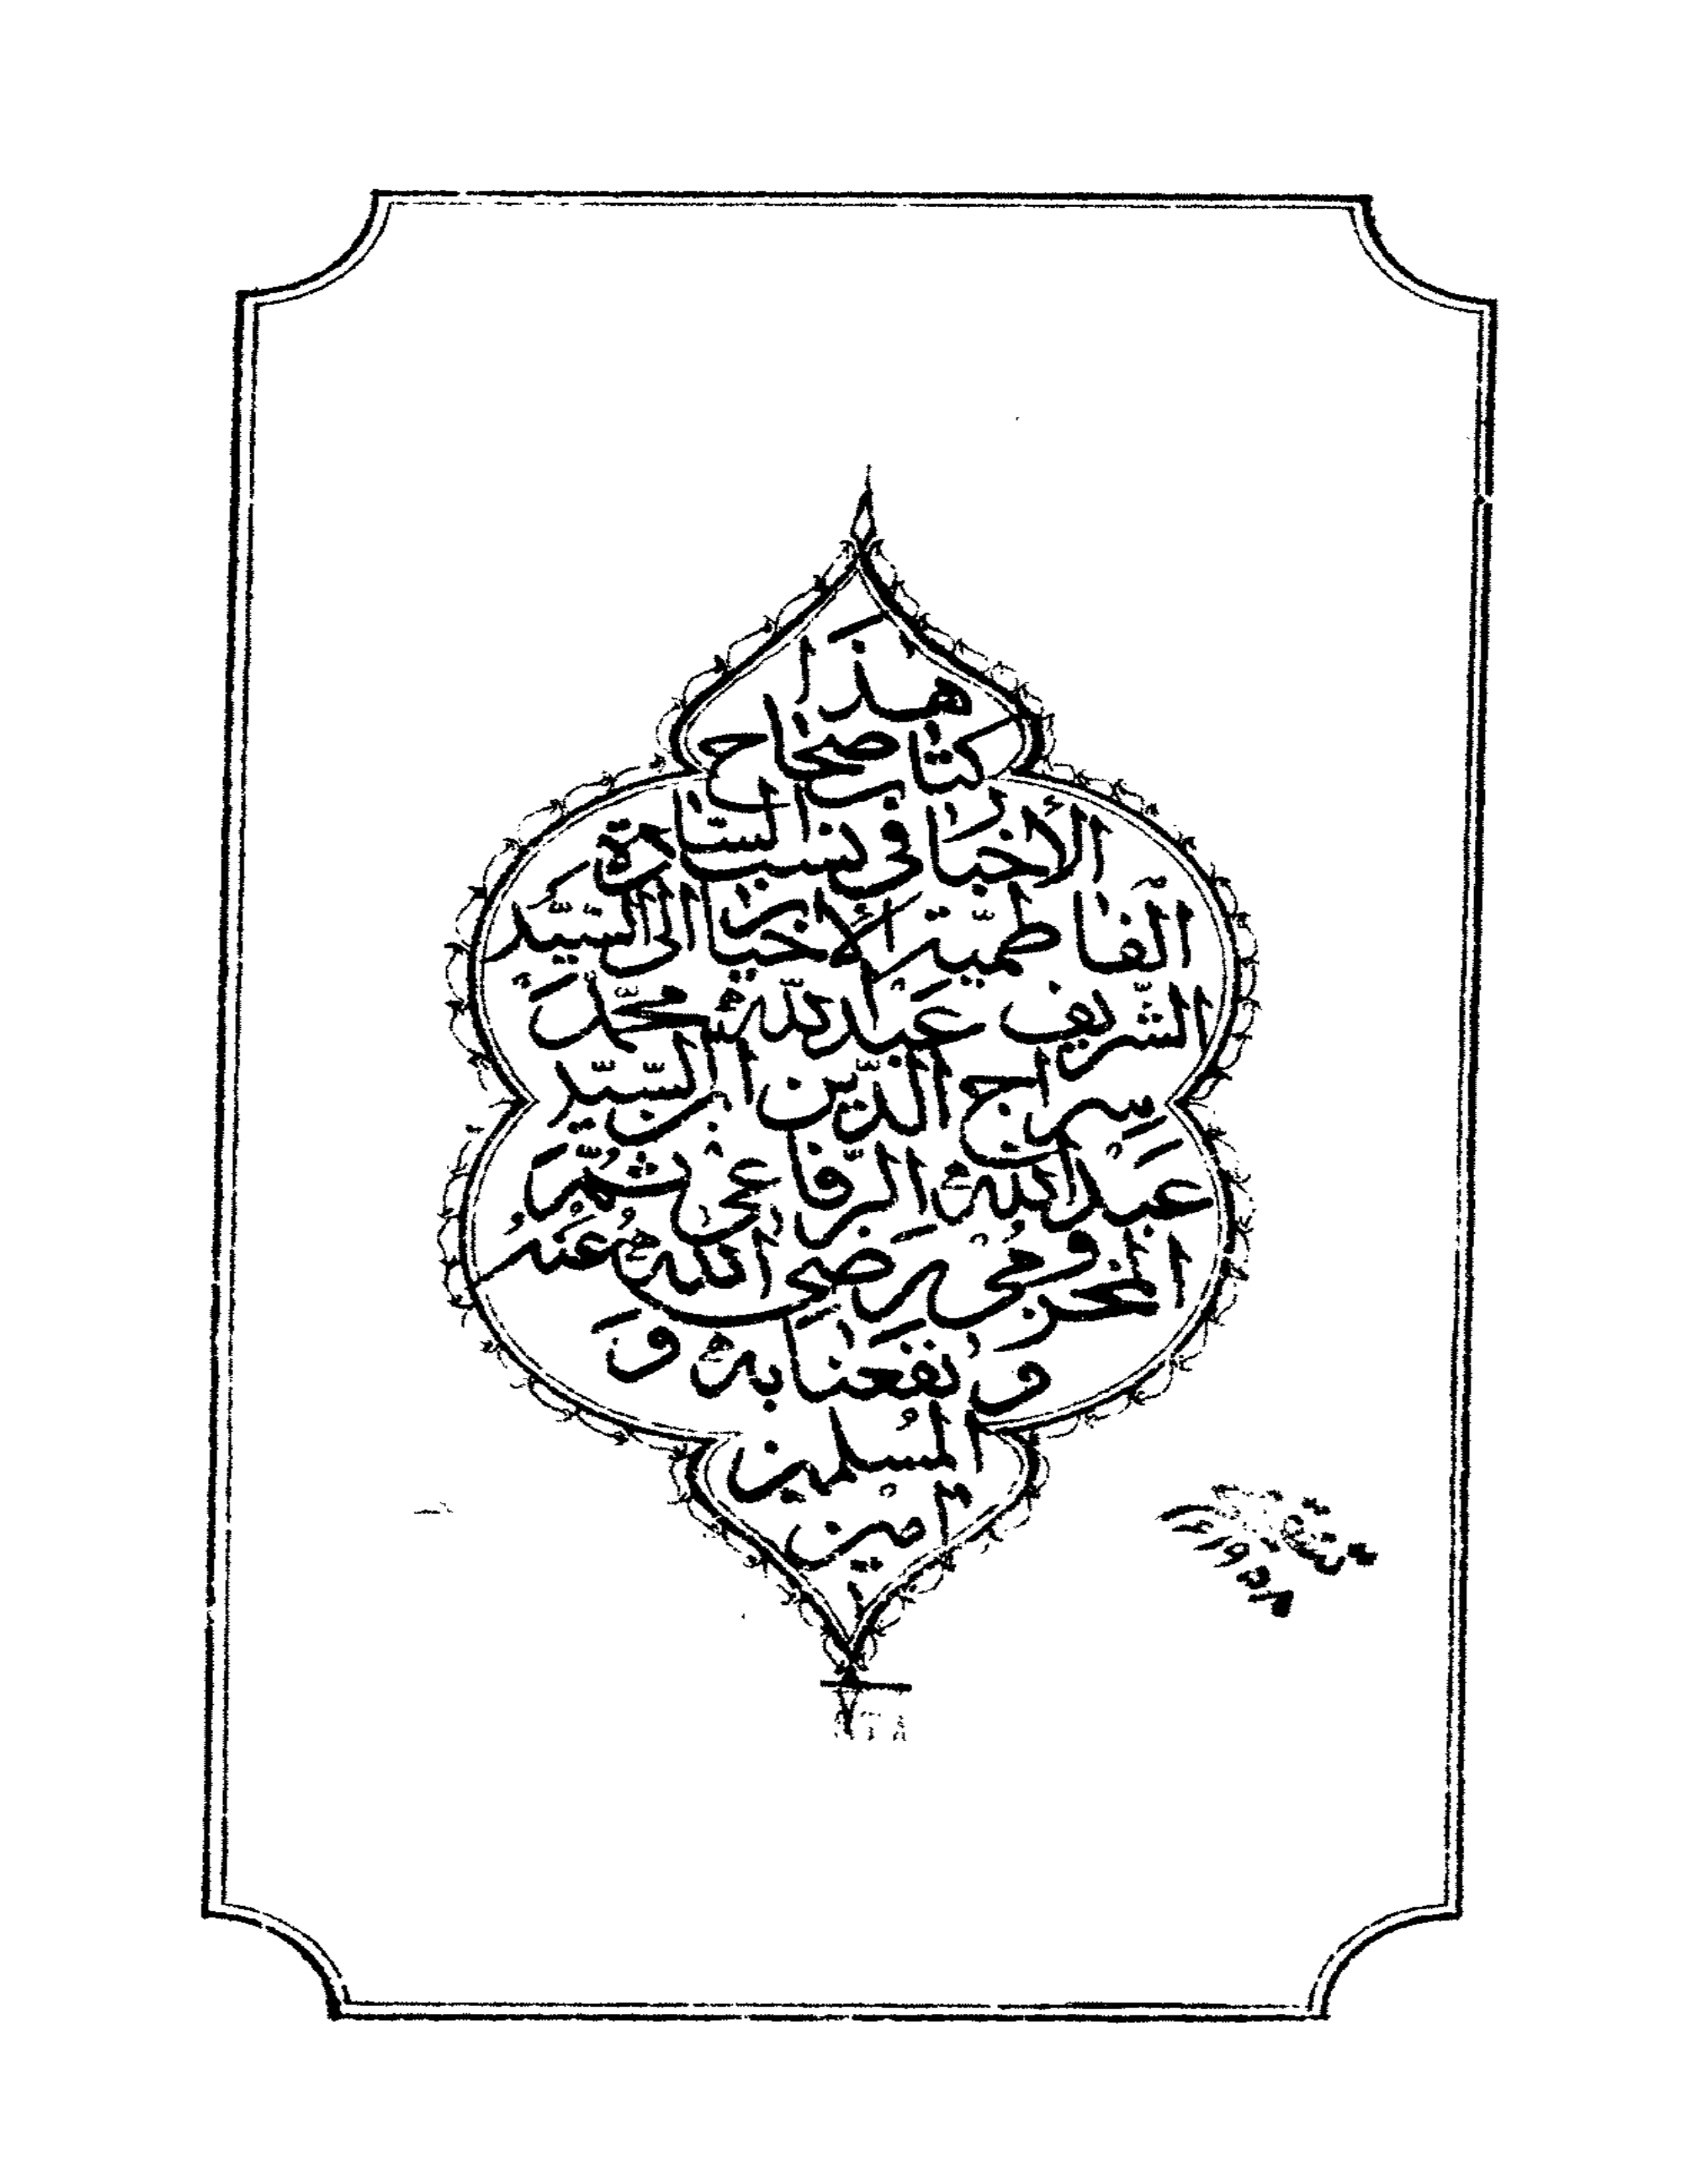 هٰذَا
كتاب صحاح
الأخبار في نسب السّادة
الفاطميّة الأخيار الى السّيّد
الشّريف عَبد الله محمّد
سراج الدّين ابن السّيّد
عَبد الله الرّفاعى ثمّ
المخزومى رَضى الله عَنهُ
و نفعَنا به وَ
المسُلمين
امين
١٩٥٨